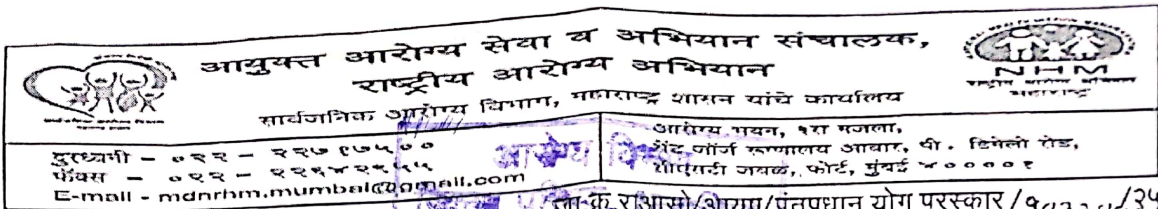 आयुक्त आरोग्य सेवा व अभियान संचालक,
राष्ट्रीय आरोग्य अभियान
सार्वजनिक आरोग्य विभाग, महाराष्ट्र शासन यांचे कार्यालय
NHM
महाराष्ट्र
दुरध्वनी - ०२२ -
फॅक्स - ०२२ -
E-mail - mdnrhm.mumbai@gmail.com
आरोग्य भवन, १रा मजला,
सेंट जॉर्ज रूग्णालय आवार, पी. डिमेलो रोड,
सीएसटी जवळ, फोर्ट, मुंबई ४००००१
आरोग्य
पंतप्रधान योग पुरस्कार/